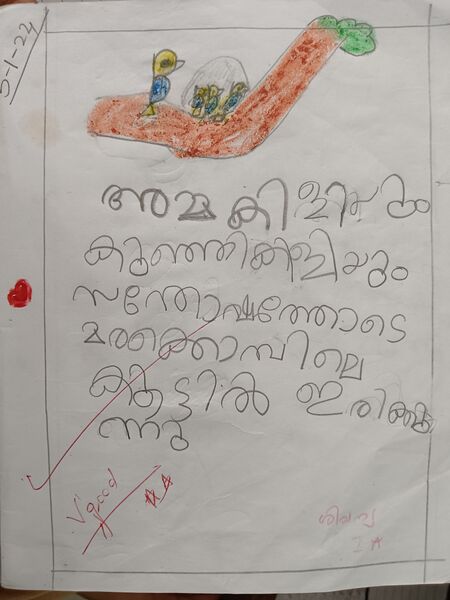 5-1-24
അമ്മകിളിയും
കുഞ്ഞികിളിയും
സന്തോഷത്തോടെ
മരക്കൊമ്പിലെ
കൂട്ടിൽ ഇരിക്കു
ന്നു
V'good
I A